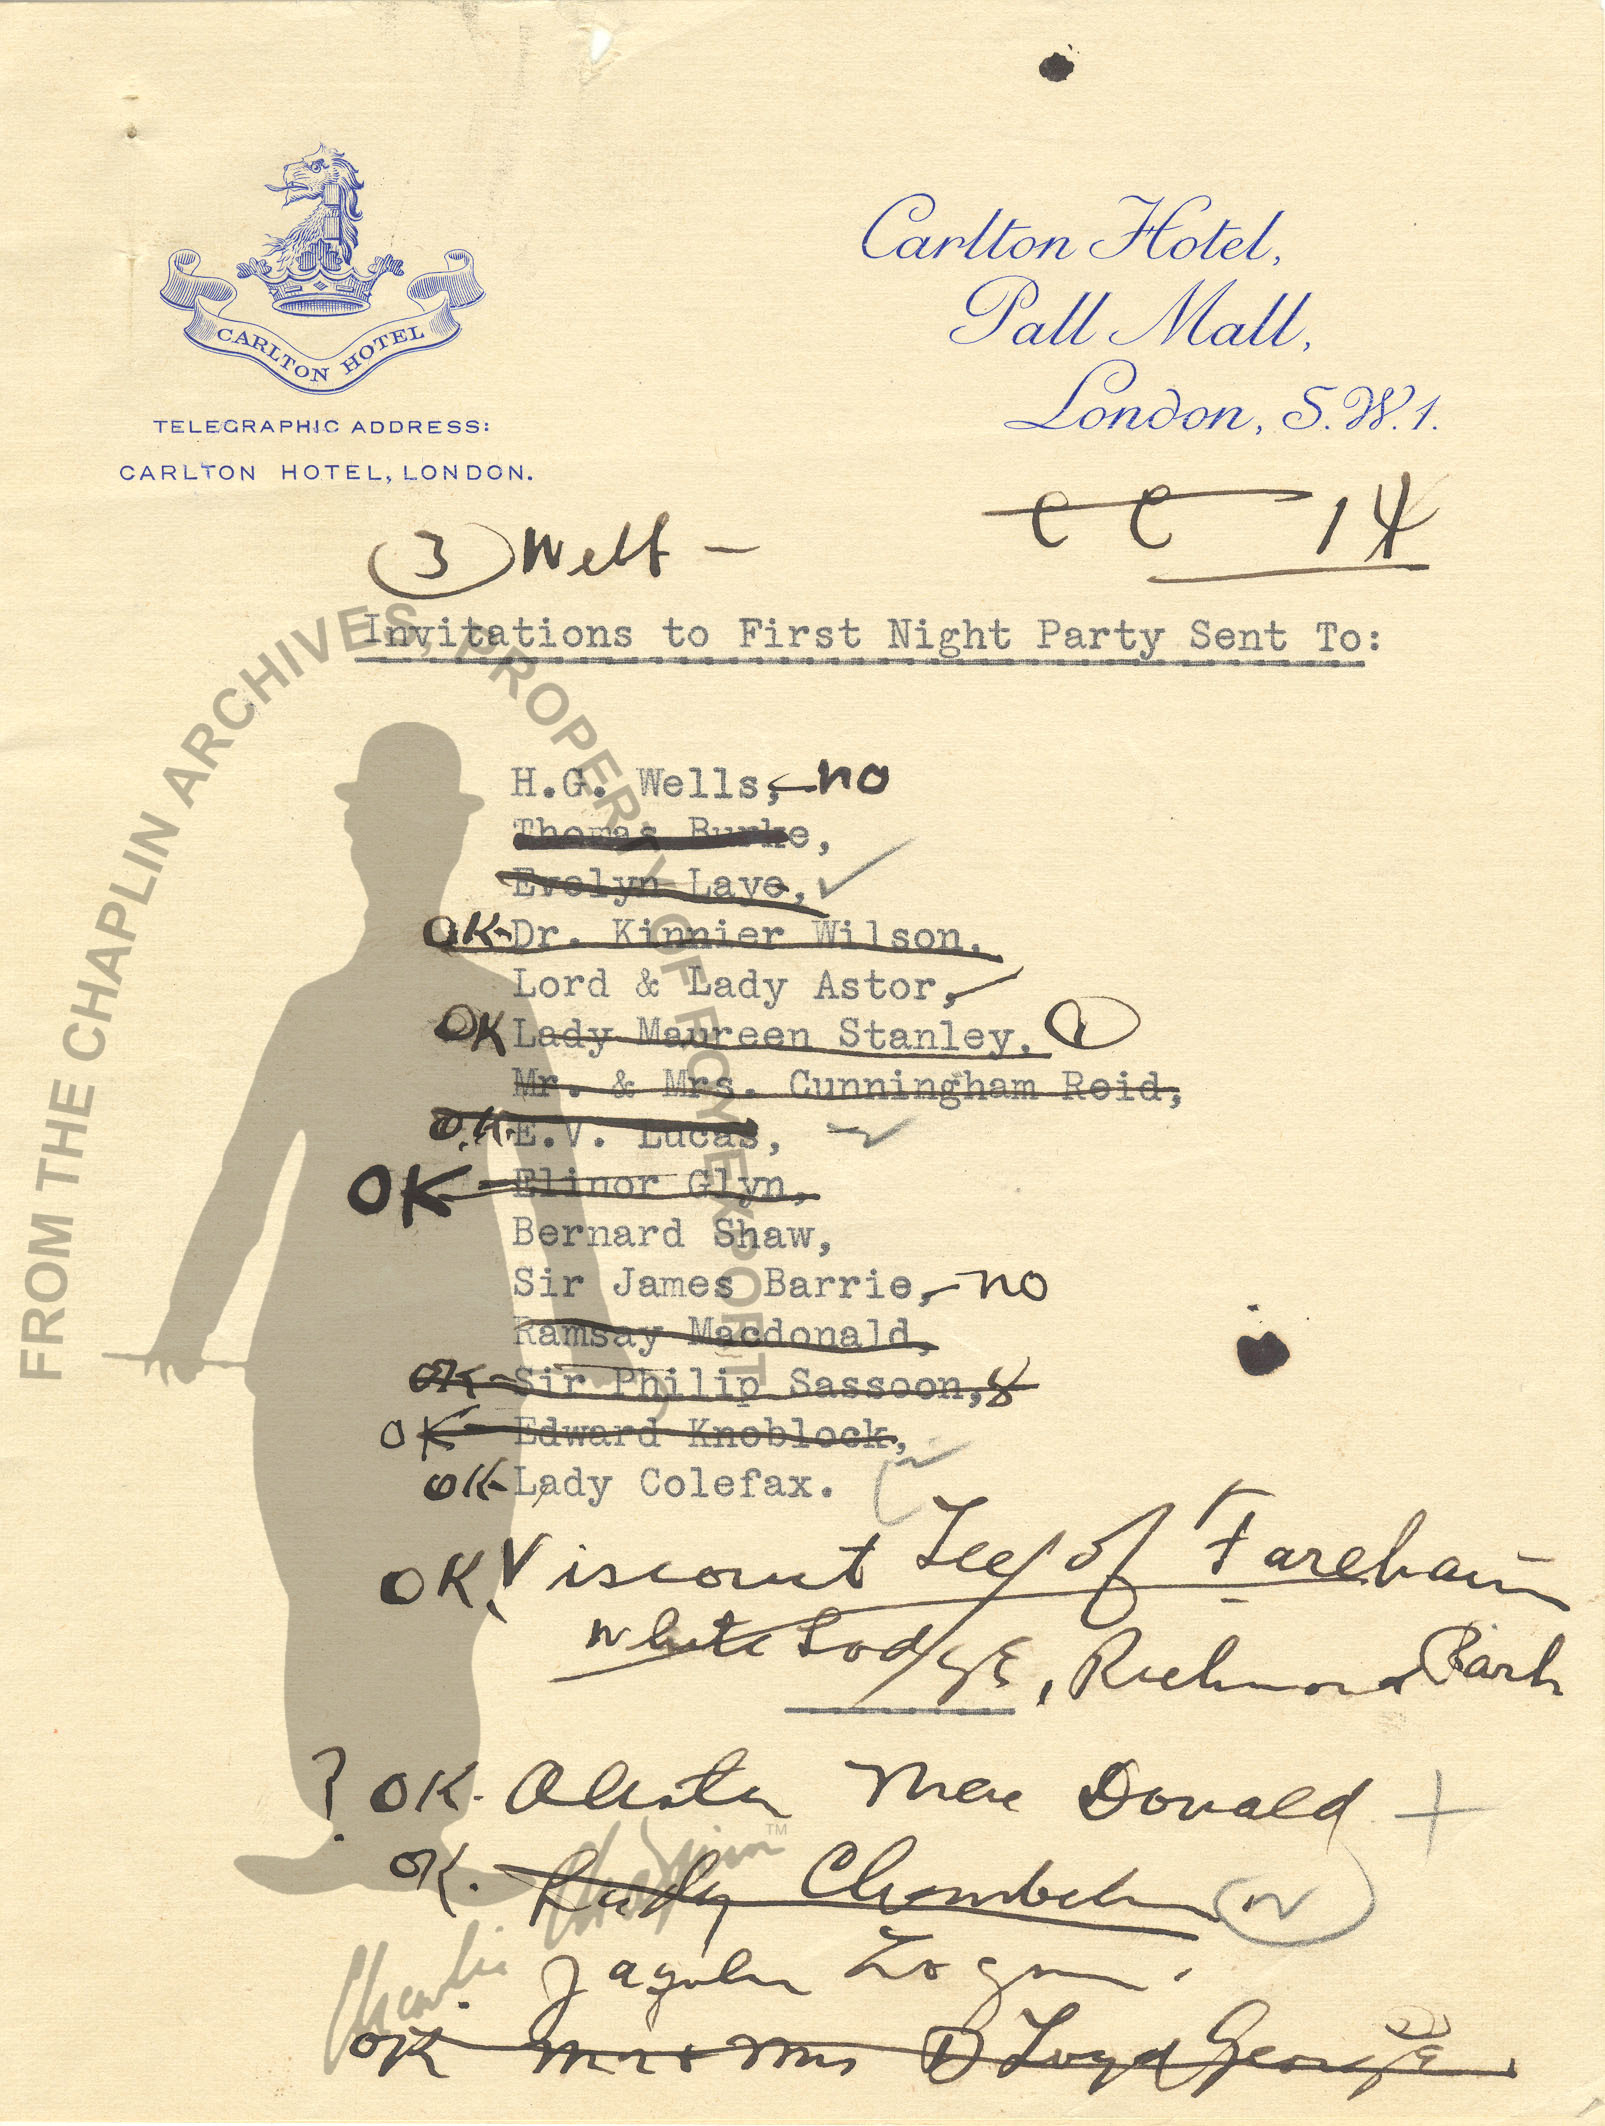 CARLTON HOTEL
TELEGRAPHIC ADDRESS:
CARLTON HOTEL, LONDON.
Carlton Hotel,
Pall Mall,
London, S.W.1.
C C 14
(3)
Invitations to First Night Party Sent To:
H.G. Wells, - no
Thomas Burke,
Evelyn Laye,
OK- Dr. Kinnier Wilson,
Lord & Lady Astor,
OK Lady Maureen Stanley, 1
Mr. & Mrs. Cunningham Reid,
OK. E.V. Lucas,
OK - Elinor Glyn,
Bernard Shaw,
Sir James Barrie, - no
Ramsay Macdonald,
OK - Sir Philip Sassoon, 8
OK - Edward Knoblock,
OK- Lady Colefax.
OK. Viscount Lee of Fareham
White Lodge, Richmond Park
? OK. Alister Mac Donald +
OK.
Logan.
OK Mr & Mrs D Loyd George
FROM THE CHAPLIN ARCHIVES, PROPERTY OF ROY EXPORT
Charlie Chaplin TM